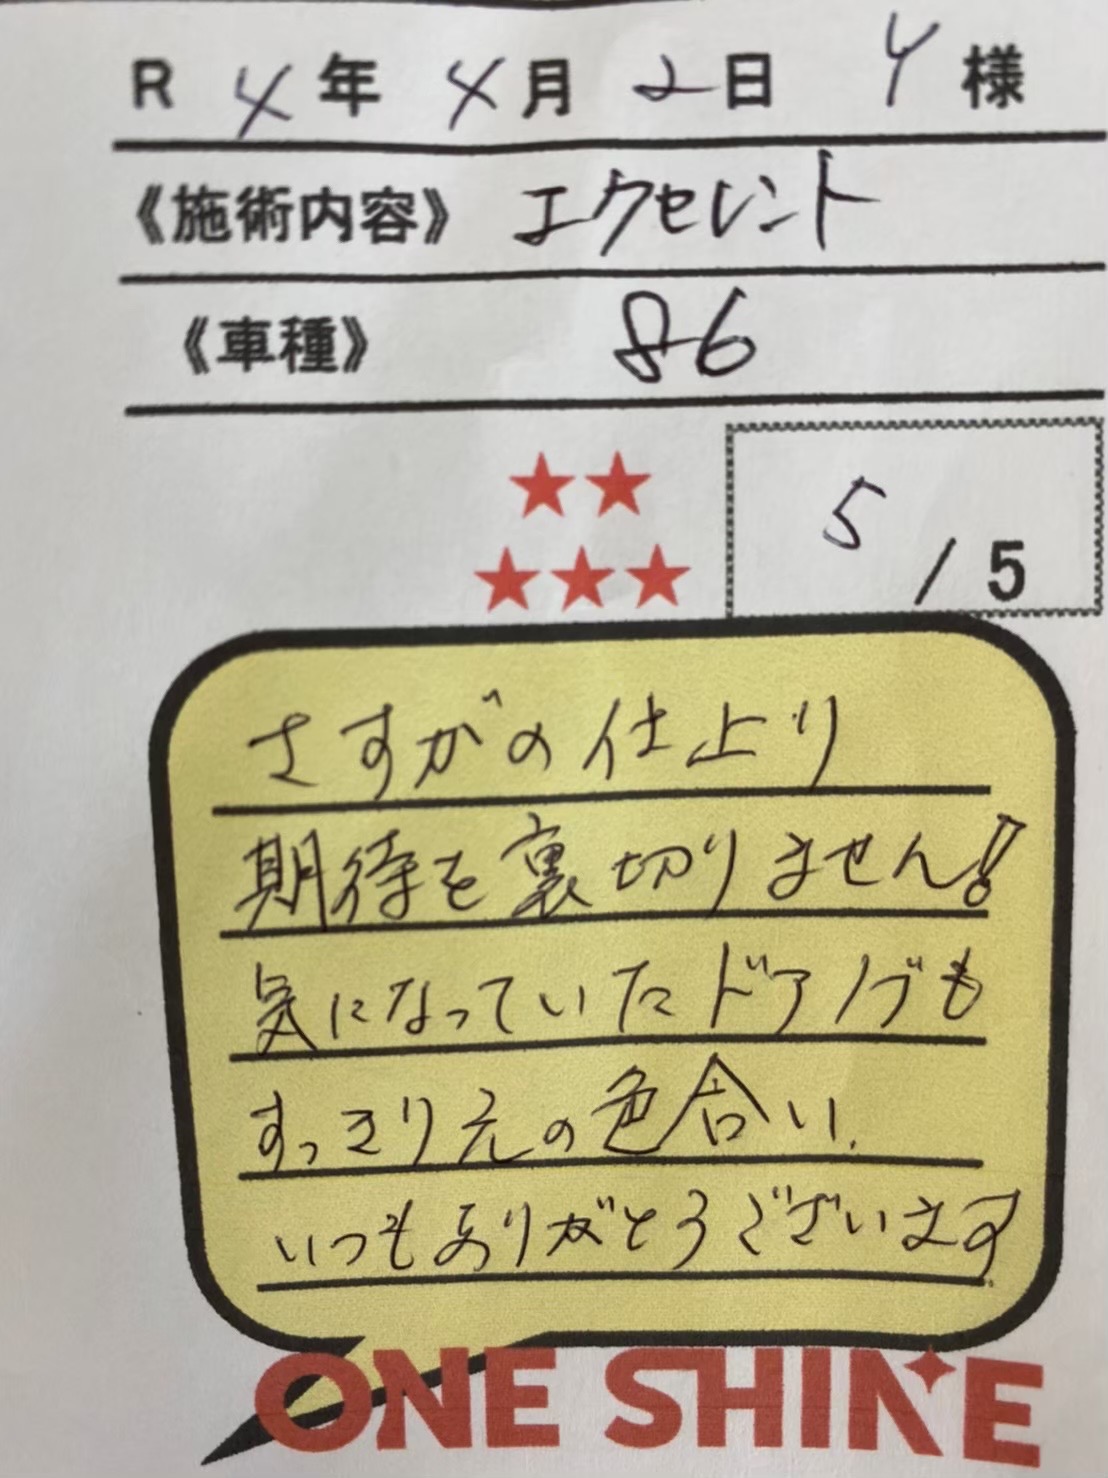 R 4年 4月 2日 Y様
《施術内容》 エクセレント
《車種》 86
★★
★★★
5 / 5
さすがの仕上り
期待を裏切りません!
気になっていたドアノブも
すっきり元の色合い.
いつもありがとうございます.
ONE SHINE